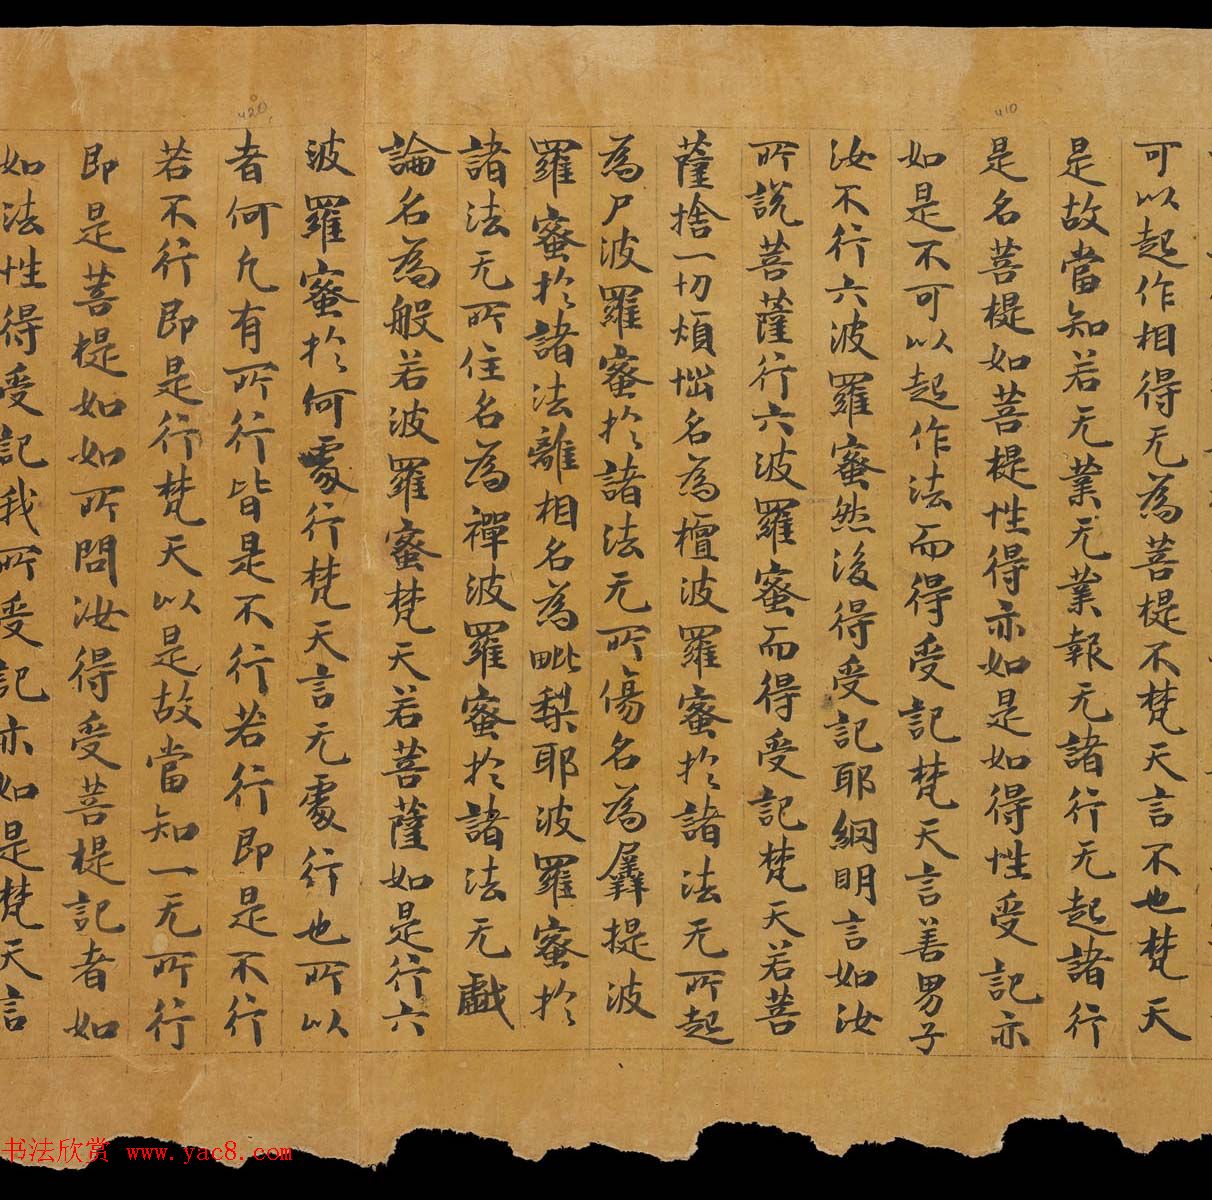 可以起作相得无為菩提不梵天言不也梵天
是故當知若无業无業報无諸行无起諸行
是名菩提如菩提性得亦如是如得性受記亦
如是不可以起作法而得受記梵天言善男子
汝不行六波羅蜜然後得受記耶網明言如汝
所說菩薩行六波羅蜜而得受記梵天若菩
薩捨一切煩惱名為檀波羅蜜於諸法无所起
為尸波羅蜜於諸法无所傷名為羼提波
羅蜜於諸法離相名為毗梨耶波羅蜜於
諸法无所住名為禪波羅蜜於諸法无戲
論名為般若波羅蜜梵天若菩薩如是行六
波羅蜜於何處行梵天言无處行也所以
者何凡有所行皆是不行若行即是不行
若不行即是行梵天以是故當知一无所行
即是菩提如如所問汝得受菩提記者如
如法性得受記我所受記亦如是梵天言
410
420
书法欣赏 www.yac8.com